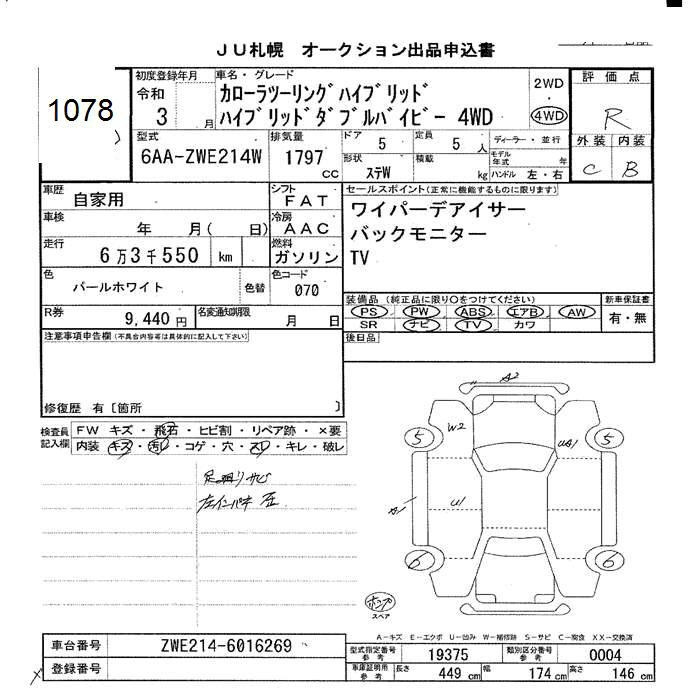 JU札幌　オークション出品申込書
1078
初度登録年月
令和
3 月
車名・グレード
カローラツーリングハイブリッド
ハイブリッドダブルバイビー 4WD
2WD
・
4WD
評価点
R
外装 内装
C B
型式
6AA-ZWE214W
排気量
1797
cc
ドア
5
定員
5 人
形状
ステW
積載
kg
ディーラー・並行
モデル年式 年
ハンドル 左・右
車歴
自家用
シフト
FAT
車検
年 月( 日)
冷房
AAC
走行
6万3千550 km
燃料
ガソリン
色
パールホワイト
色替
色コード
070
R券
9,440円
名変通知期限
月 日
セールスポイント(正常に機能するものに限ります)
ワイパーデアイサー
バックモニター
TV
装備品 (純正品に限り○をつけてください)
新車保証書
PS PW ABS エアB AW
有・無
SR ナビ TV カワ
後日品
注意事項申告欄(不具合内容等は具体的に記入して下さい)
修復歴 有〔箇所 〕
検査員記入欄
FW キズ・飛石・ヒビ割・リペア跡・×要
内装 キズ・汚レ・コゲ・穴・スレ・キレ・破レ
足廻りサビ
左インパネ
A2
W2
5
5
UA1
A1
U1
6
6
スペア
A－キズ E－エクボ U－凹み W－補修跡 S－サビ C－腐食 XX－交換済
車台番号
ZWE214-6016269
登録番号
型式指定番号 参考
19375
類別区分番号 参考
0004
車庫証明用 参考
長さ 449 cm
幅 174 cm
高さ 146 cm